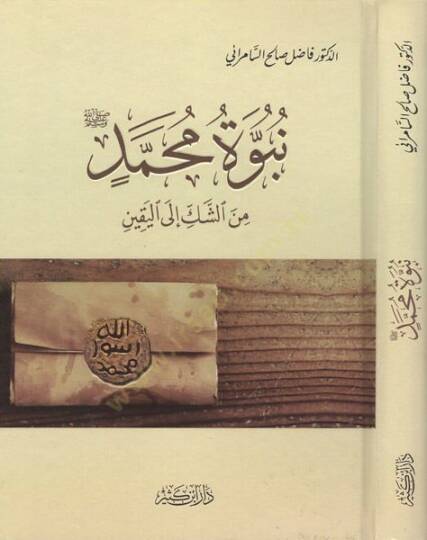 الدكتور فاضل صالح السامرائي
نُبُوَّةُ مُحَمَّدٍ ﷺ
مِنَ الشَّكِّ إِلَى اليَقِينِ
الله
رسول
محمد
دار ابن كثير
الدكتور فاضل صالح السامرائي
نُبُوَّةُ مُحَمَّدٍ ﷺ
دار ابن كثير